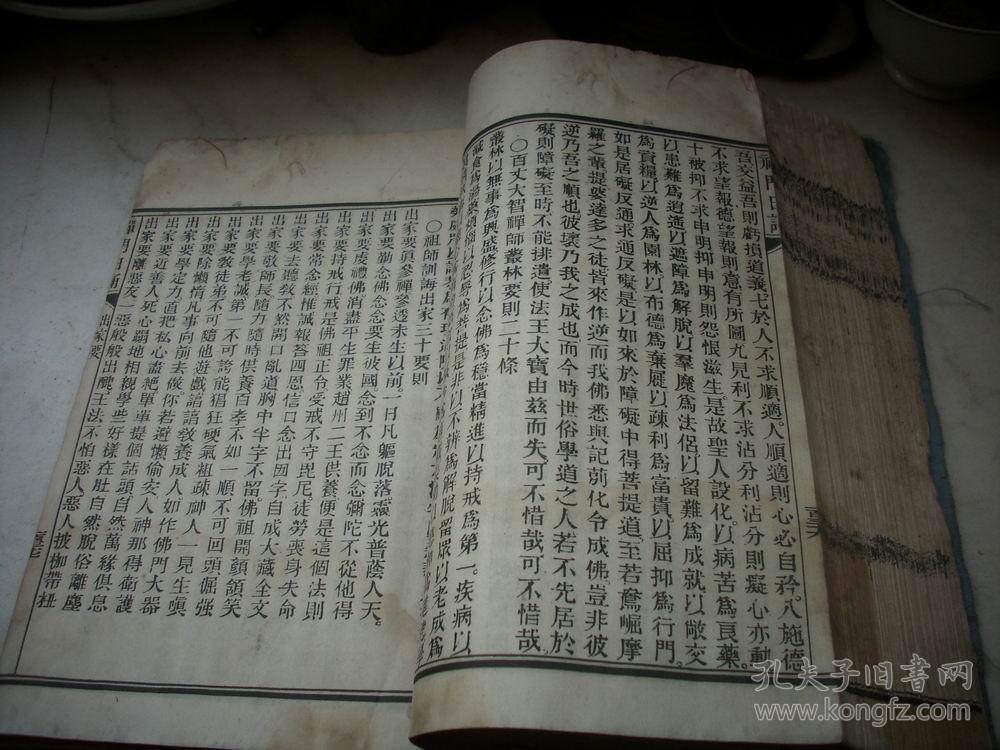 禪門日誦
吾交益吾則虧損道義七於人不求順適人順適則心必自矜八施德
不求望報德望報則意有所圖九見利不求沾分利沾分則癡心亦動
十被抑不求申明抑申明則怨恨滋生是故聖人設化以病苦為良藥
以患難為逍遙以遮障為解脫以羣魔為法侶以留難為成就以敵交
為資糧以逆人為園林以布德為棄屣以疎利為富貴以屈抑為行門
如是居礙反通求通反礙是以如來於障礙中得菩提道至若鴦崛摩
羅之輩提婆達多之徒皆來作逆而我佛悉與記莂化令成佛豈非彼
逆乃吾之順也彼壞乃我之成也而今時世俗學道之人若不先居於
礙則障礙至時不能排遣使法王大寶由茲而失可不惜哉可不惜哉
〇百丈大智禪師叢林要則二十條
叢林以無事為興盛修行以念佛為穩當精進以持戒為第一疾病以
減食為湯藥煩惱以忍辱為菩提是非以不辨為解脫留眾以老成為
〇祖師訓誨出家三十要則
出家要眞參禪參透未生以前一日凡軀脫落靈光普蔭人天
出家要勤念佛念念要生彼國念到不念而念彌陀不從他得
出家要虔禮佛消盡平生罪業趙州二王供養便是這個法則
出家要持戒行戒是佛祖正令受戒不守毘尼徒勞喪身失命
出家要常念經惟誠報答四恩信口念出囫字自成大藏全文
出家要去聽教不然開口亂道胸中半字不留佛祖開顏頷笑
出家要敬師長隨力隨時供養百孝不如一順不可回頭倔强
出家要學老誠第一不可誇能猖狂硬氣祖疎神人一見生嗔
出家要教徒弟不可隨他遊戲諳諳教養成人如作佛門大器
出家要除懶惰凡事向前去做你若避懶偷安人神那得衛護
出家要學定力直把私心盡絕單單提個話頭自然萬緣俱息
出家要近善人死心蹋地相親學些好樣在肚自然脫俗離塵
出家要離惡友一惡般般出醜王法不怕惡人惡人披枷帶杻
出家要